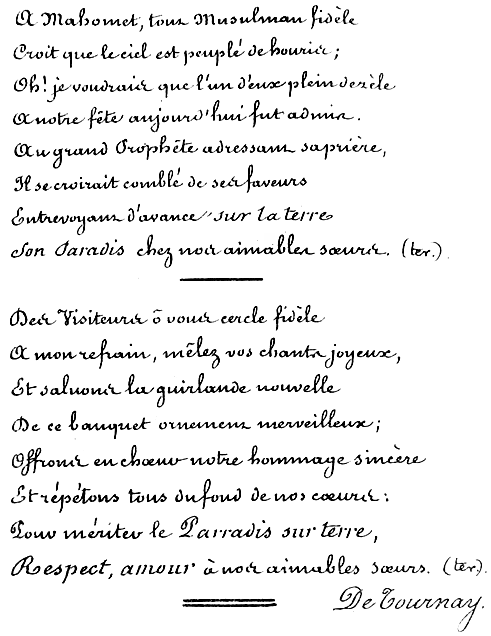 A Mahomet, tout Musulman fidèle
Croit que le ciel est peuplé de houris ;
Oh! je voudrais que l'un d'eux plein de zèle
A notre fête aujourd'hui fut admis.
Au grand Prophête adressant sa prière,
Il se croirait comblé de ses faveurs
Entrevoyant d'avance sur la terre
Son Paradis chez nos aimables sœurs. (ter.)
Des Visiteurs ô vous cercle fidèle
A mon refrain, mêlez vos chants joyeux,
Et saluons la guirlande nouvelle
De ce banquet ornement merveilleux ;
Offrons en chœur notre hommage sincère
Et répétons tous du fond de nos cœurs :
Pour mériter le Parradis sur terre,
Respect, amour à nos aimables sœurs. (ter).
De Tournay.